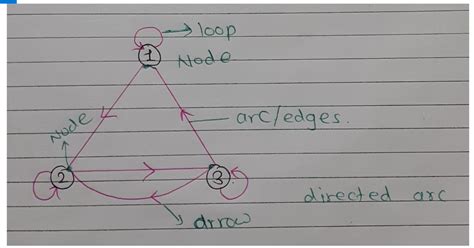 loop
1
Node
Node
arc/edges.
2
3
directed arc
arrow